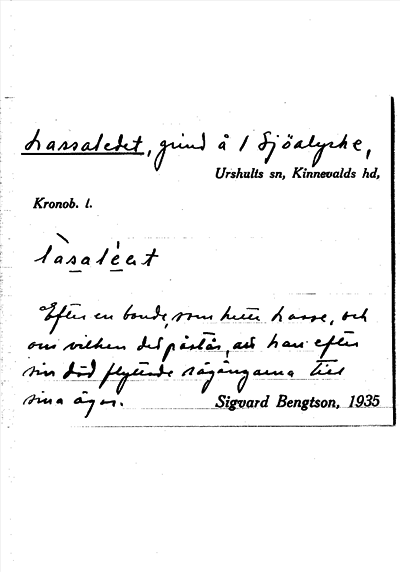 Lassaledet, grind å 1 Sjöalycke,
Urshults sn, Kinnevalds hd,
Kronob. l.
làsaléet
Efter en bonde, som hette Lasse, och
om vilken det påstås, att han efter
sin död flyttade rågångarna till
sina ägor.
Sigvard Bengtson, 1935